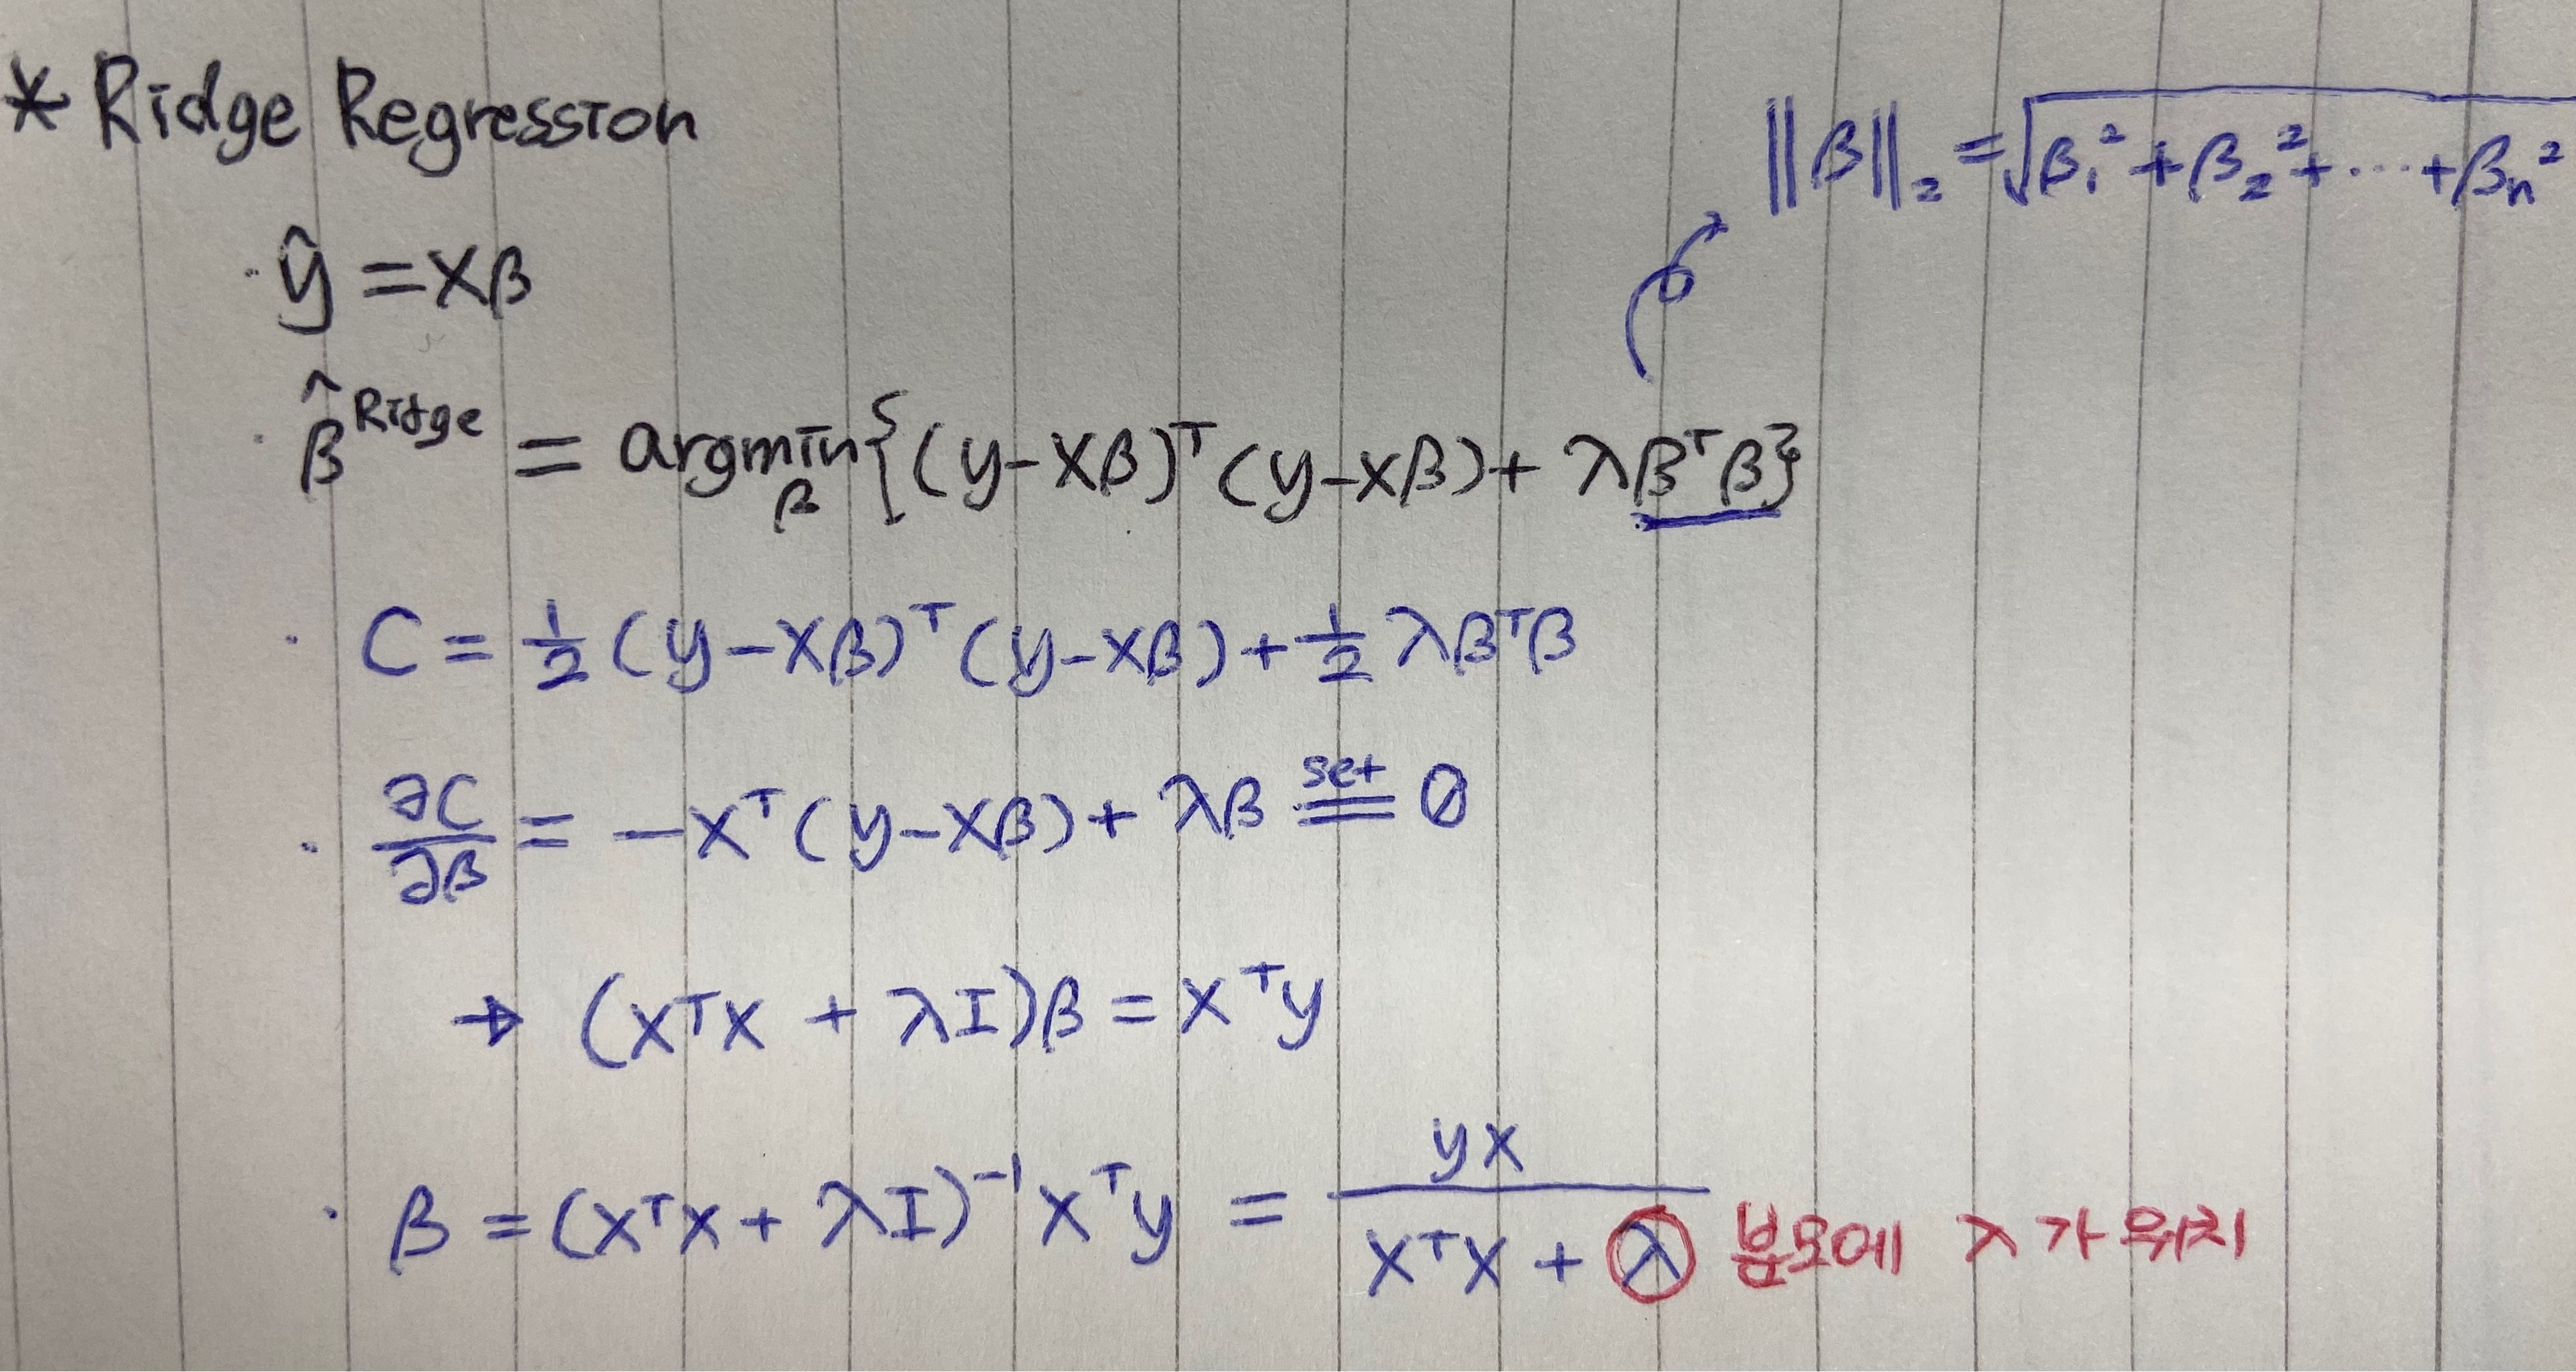 * Ridge Regression
‖β‖₂ = √(β₁² + β₂² + ⋯ + βₙ²)
· ŷ = Xβ
· β̂^Ridge = argmin_β {(y-Xβ)ᵀ(y-Xβ) + λβᵀβ}
· C = 1/2 (y-Xβ)ᵀ(y-Xβ) + 1/2 λβᵀβ
· ∂C/∂β = -Xᵀ(y-Xβ) + λβ set= 0
→ (XᵀX + λI)β = Xᵀy
· β = (XᵀX + λI)⁻¹Xᵀy = yX / (XᵀX + λ) 분모에 λ가 위치